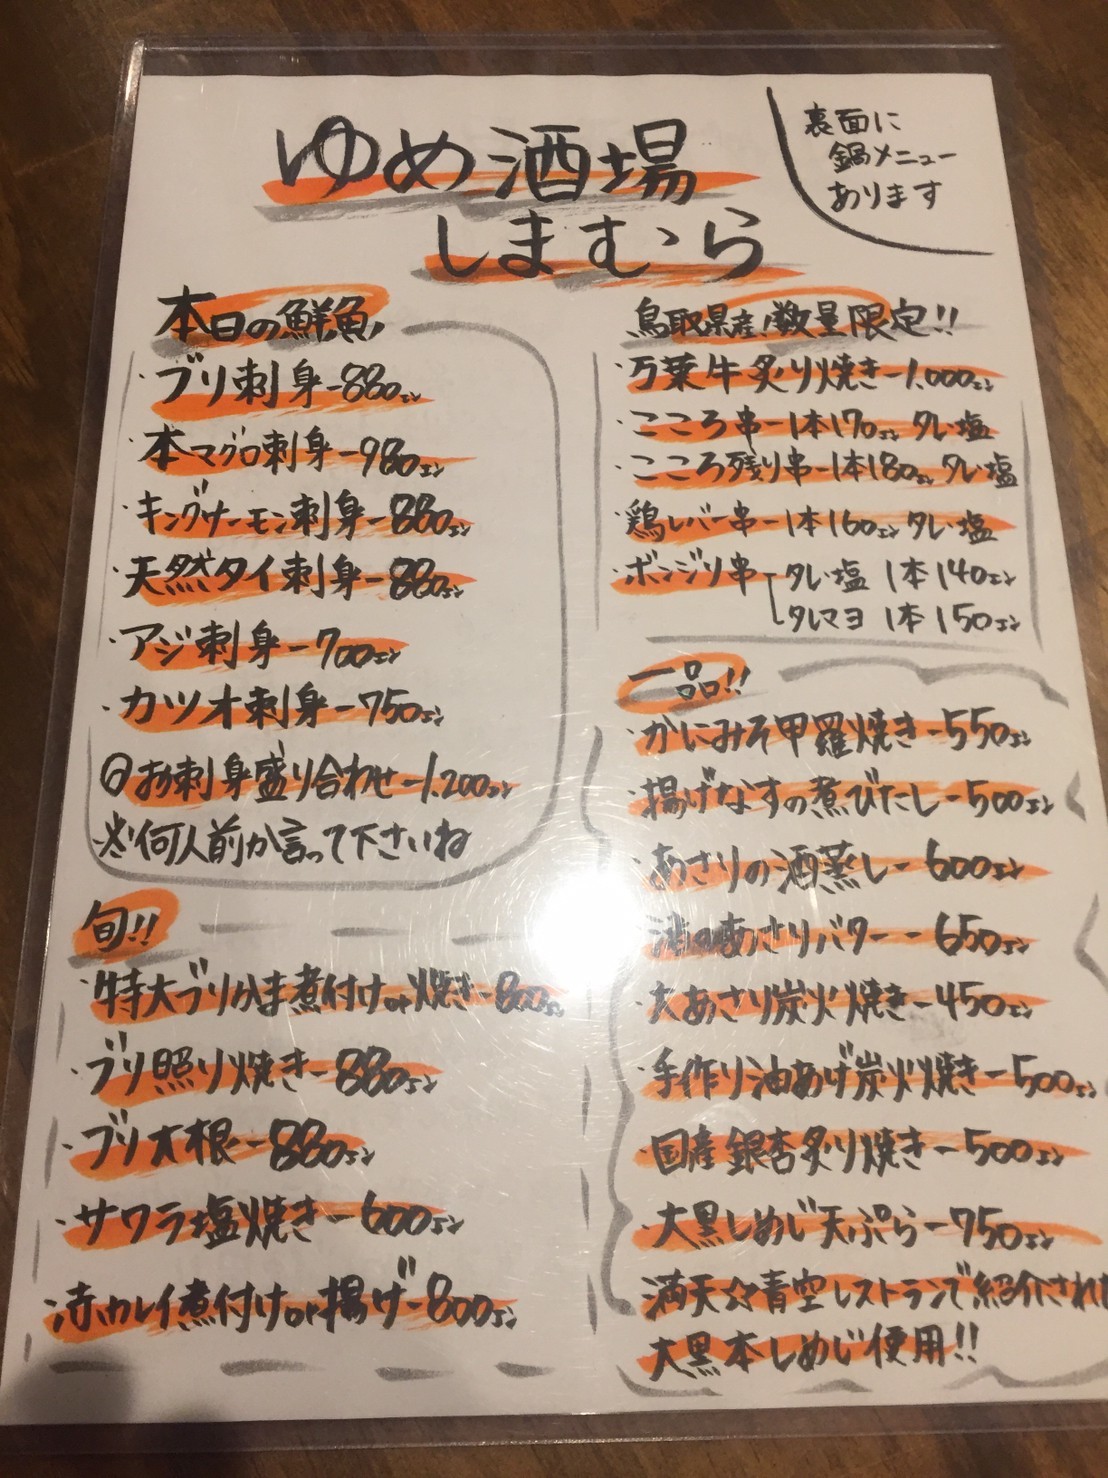 ゆめ酒場
しまむら
裏面に
鍋メニュー
あります
本日の鮮魚
・ブリ刺身-880エン
・本マグロ刺身-980エン
・キングサーモン刺身-880エン
・天然タイ刺身-880エン
・アジ刺身-700エン
・カツオ刺身-750エン
◎お刺身盛り合わせ-1,200エン
※何人前か言って下さいね
旬!!
・特大ブリかま煮付けor焼き-800エン
・ブリ照り焼き-880エン
・ブリ大根-880エン
・サワラ塩焼き-600エン
・赤カレイ煮付けor揚げ-800エン
鳥取県産!数量限定!!
・万葉牛炙り焼き-1,000エン
・こころ串-1本170エン タレ・塩
・こころ残り串-1本180エン タレ・塩
・鶏レバー串-1本160エン タレ・塩
・ボンジリ串 タレ・塩 1本140エン
タレマヨ 1本150エン
一品!!
・かにみそ甲羅焼き-550エン
・揚げなすの煮びたし-500エン
・あさりの酒蒸し-600エン
・あさりバター-650エン
・大あさり炭火焼き-450エン
・手作り油あげ炭火焼き-500エン
・国産銀杏炙り焼き-500エン
・大黒しめじ天ぷら-750エン
満天☆青空レストランで紹介された
大黒本しめじ使用!!